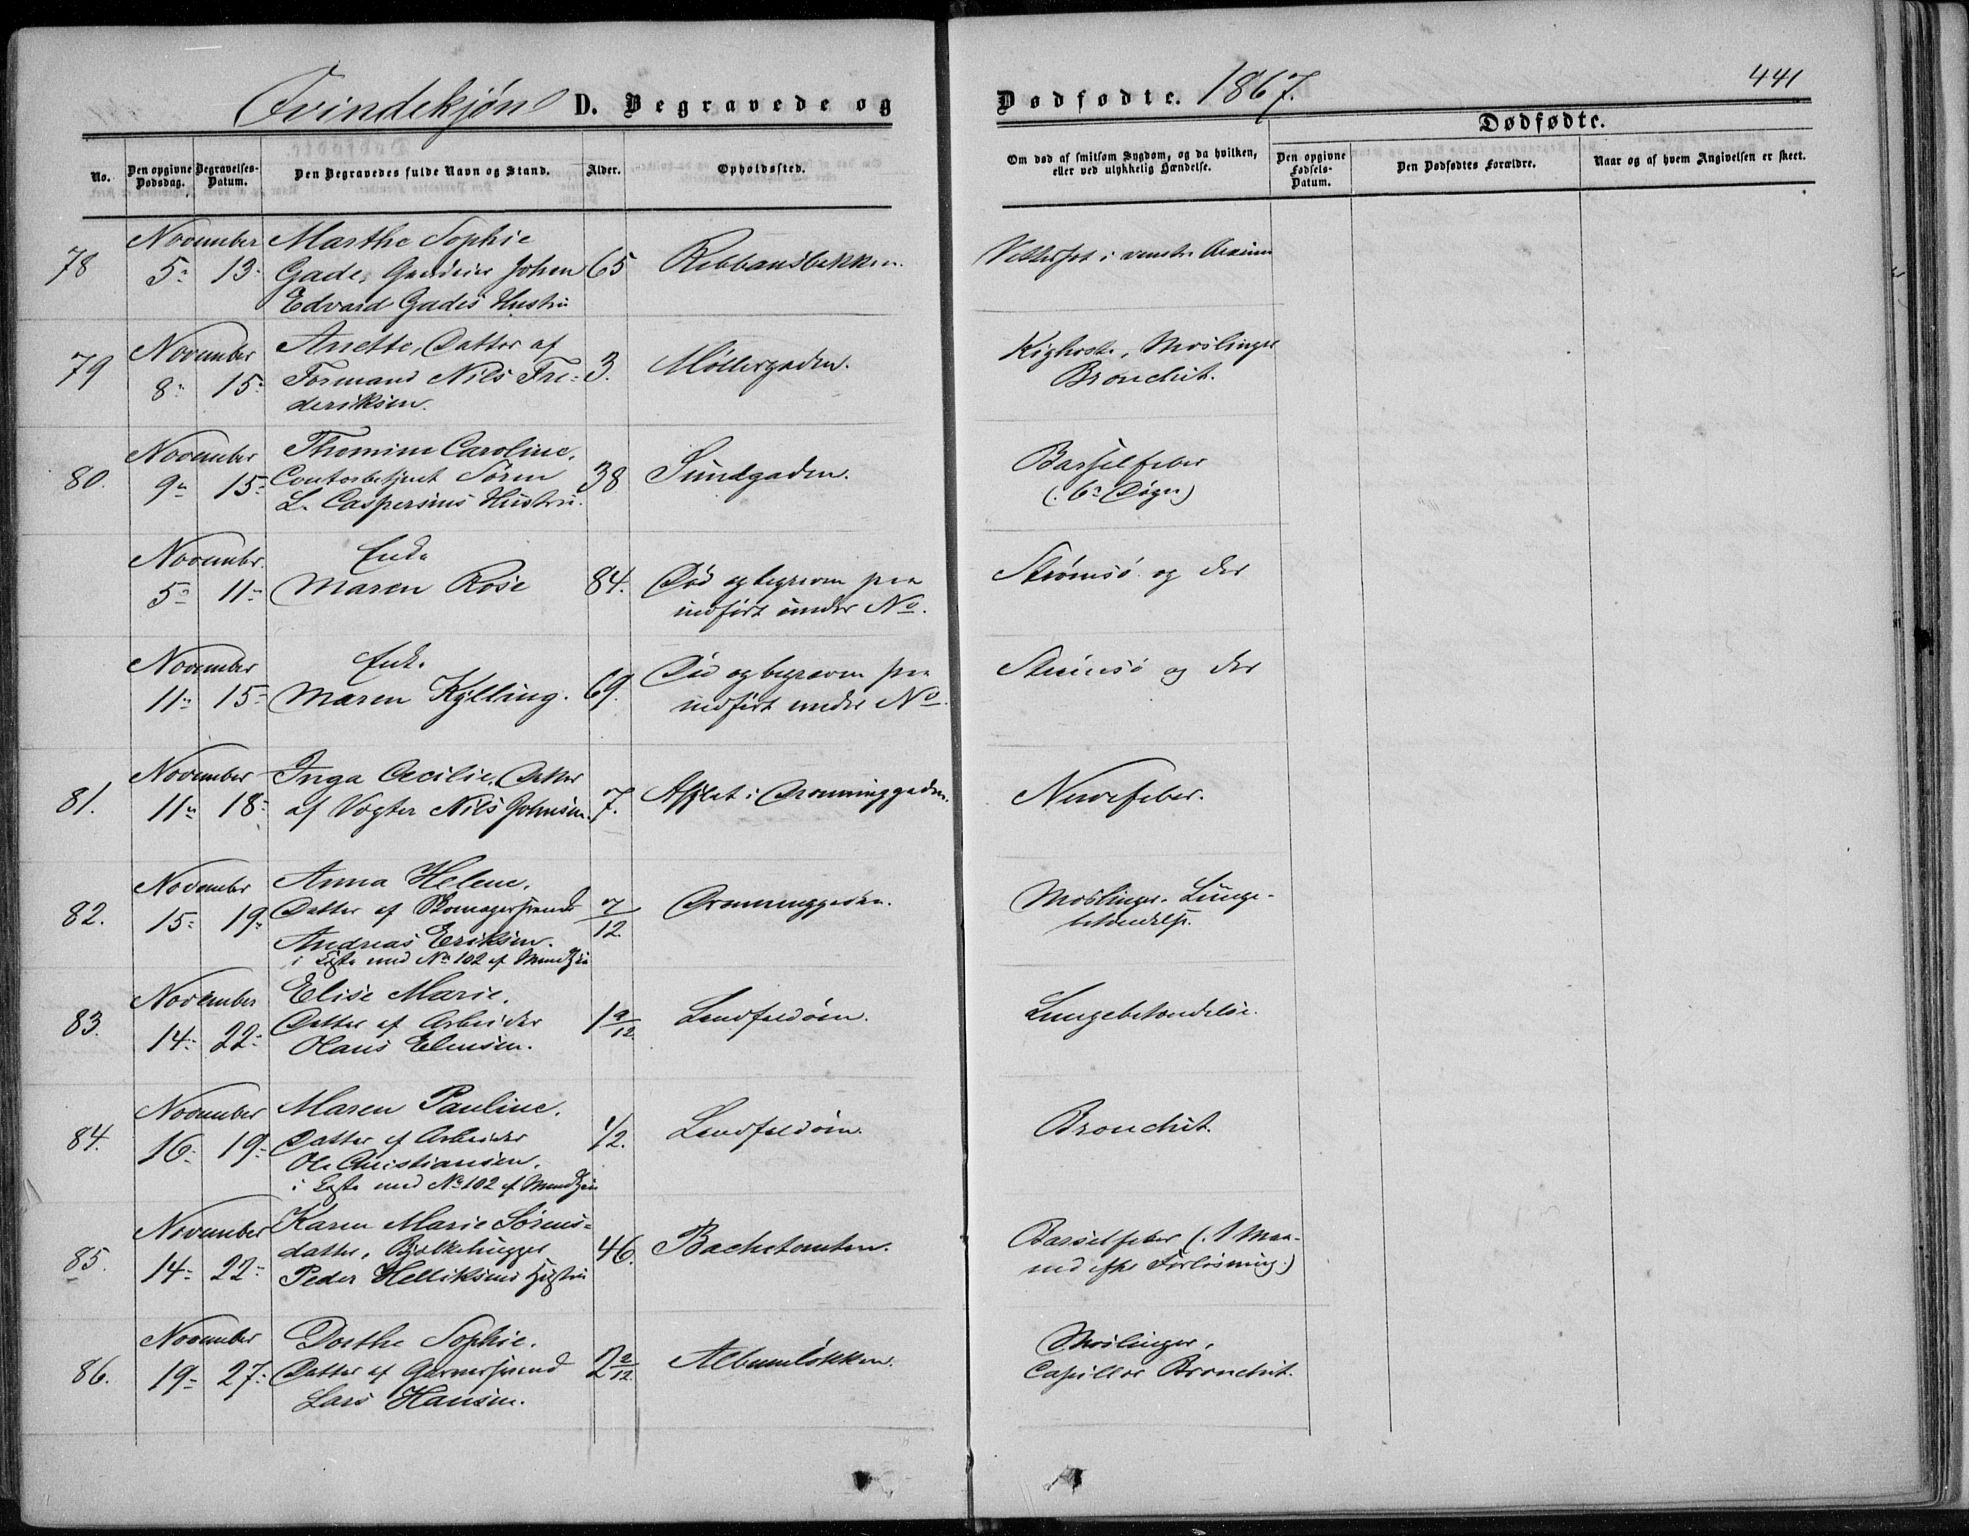 Qvindekjøn D. Begravede og Dødfødte. 1867. 441
Dødfødte.
No.
Den opgivne Dødsdag.
Begravelses-Datum.
Den Begravedes fulde Navn og Stand.
Alder.
Opholdssted.
Om død af smitsom Sygdom, og da hvilken, eller ved ulykkelig Hændelse.
Den opgivne Fødsels-Datum.
Den Dødfødtes Forældre.
Naar og af hvem Angivelsen er skeet.
78 November Marthe Sophie
5 13 Gade, Johan 65
Edvard Gades Hustru
79 November Anette, Datter af Kighoste, Meslinger
8 15 Formand Nils Fre- 3. Møllergaden. Bronchit.
deriksen.
80. November Thomine Caroline, Barselfeber
9 15 Contorbetjent Søren 38 Sundgaden. (6 Døgn)
L. Caspersens Hustru.
November. Enke Strømsø og der
5 11 Maren Rose 84. Død og begraven paa
indført under No.
November Enke Strømsø og der
11 15 Maren Kylling. 69. Død og begraven paa
indført under No.
81. November Inga Cecilie, Datter Nervefeber.
11 18 af Vogter Nils Johnsen. 7. Asylet i Dronninggaden.
82. November Anna Helene. Meslinger. Lunge-
15 19 Datter af Skomagersvend 7/12 Dronninggaden. betændelse.
Andreas Eriksen.
i Kiste med No 102 af Mandkjøn
83. November Elise Marie.
14 22 Datter af Arbeider 1 9/12 Landfaldøen. Lungebetændelse.
Hans Elensen.
84. November Maren Pauline.
16 19 Datter af Arbeider 1/2. Landfaldøen. Bronchit.
Ole Christiansen.
i Kiste med No 102 af Mandkjøn
85. November Karen Marie Sørens- Barselfeber (1 Maa-
14 22 datter, Bjelkehugger 46. Bachetomten. ned efter Forløsning.)
Peder Helliksens Hustru
86. November Dorthe Sophie. Meslinger,
19 27 Datter af Garversvend 2 2/12 Albumløkken. Capillær Bronchit.
Lars Hansen.